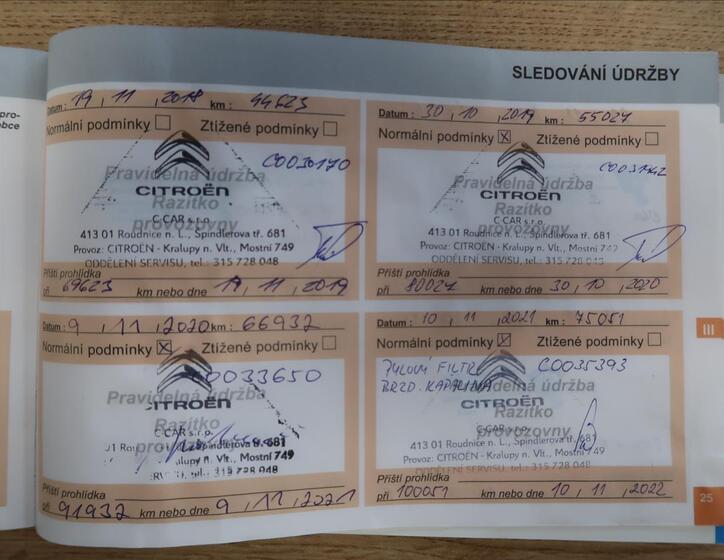 pro-
obce
SLEDOVÁNÍ ÚDRŽBY
Datum : 19 , 11 , 2018 km : 44623
Normální podmínky Ztížené podmínky
C0030170
Pravidelná údržba
CITROËN
Razítko
C-CAR s.r.o.
provozovny
413 01 Roudnice n. L., Špindlerova tř. 681
Provoz: CITROËN - Kralupy n. Vlt., Mostní 749
ODDĚLENÍ SERVISU, tel.: 315 728 048
Příští prohlídka
při 69623 km nebo dne 19 , 11 , 2019
Datum : 30 , 10 , 2019 km : 55027
Normální podmínky X Ztížené podmínky
Pravidelná údržba
CITROËN
Razítko
C-CAR s.r.o.
provozovny
413 01 Roudnice n. L., Špindlerova tř. 681
Provoz: CITROËN - Kralupy n. Vlt., Mostní 749
ODDĚLENÍ SERVISU, tel.: 315 728 048
Příští prohlídka
při 80027 km nebo dne 30 , 10 , 2020
Datum : 9 , 11 , 2020 km : 66932
Normální podmínky X Ztížené podmínky
C0033650
Pravidelná údržba
CITROËN
Razítko
C-CAR s.r.o.
provozovny
Špindlerova tř. 681
Kralupy n. Vlt., Mostní 749
tel.: 315 728 048
Příští prohlídka
při 91932 km nebo dne 9 , 11 , 2021
Datum : 10 , 11 , 2021 km : 75051
Normální podmínky X Ztížené podmínky
PYLOVÝ FILTR C0035393
BRZD. KAPALINA
Pravidelná údržba
CITROËN
Razítko
C-CAR s.r.o.
provozovny
413 01 Roudnice n. L., Špindlerova tř. 681
Provoz: CITROËN - Kralupy n. Vlt., Mostní 749
ODDĚLENÍ SERVISU, tel.: 315 728 048
Příští prohlídka
při 100051 km nebo dne 10 , 11 , 2022
III
25